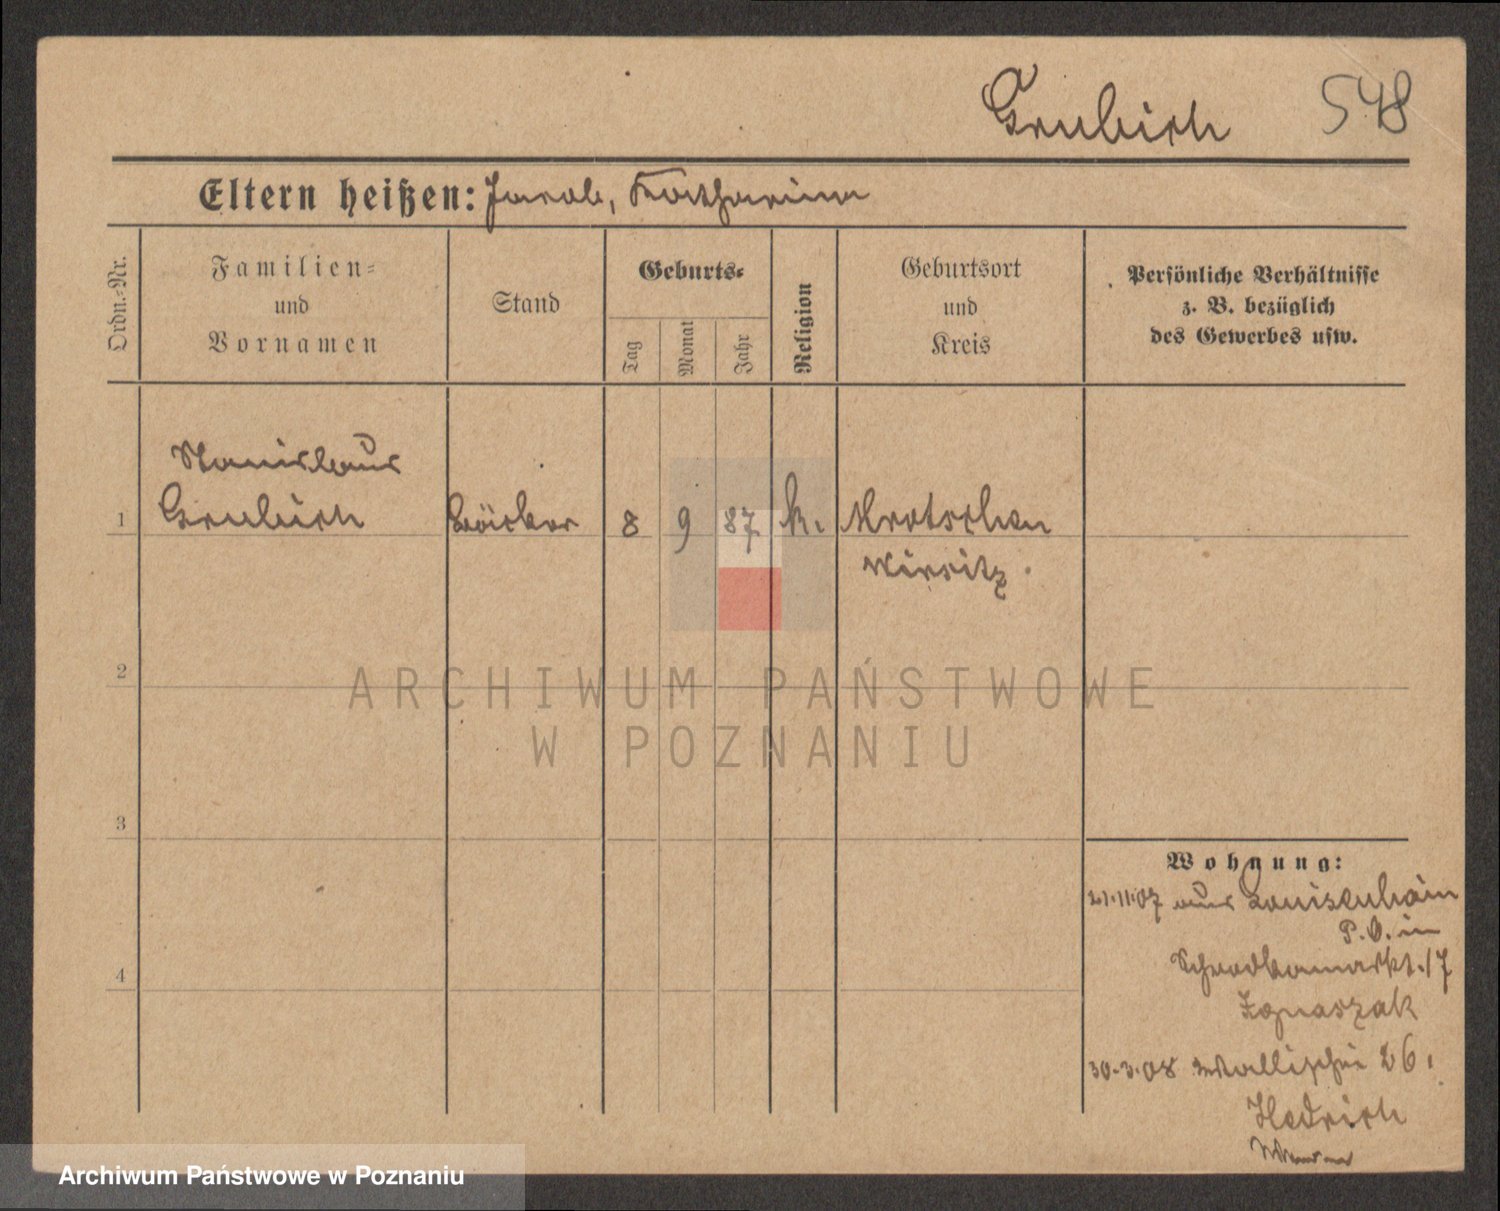 Grubich 548
Eltern heißen: Jacob, Katharina
Ordn.-Nr.
Familien-
und
Vornamen
Stand
Geburts-
Tag
Monat
Jahr
Religion
Geburtsort
und
Kreis
Persönliche Verhältnisse
z. B. bezüglich
des Gewerbes usw.
Stanislaus
1 Grubich Bäcker 8 9 87 k. Mrotschen
Wirsitz
2
ARCHIWUM PAŃSTWOWE
W POZNANIU
3
Wohnung:
21.11.07 aus Louisenhain
P. O. in
Schrodkamarkt 17
Ignaszak
4
30.3.08 Wallischei 26.
Hedrich
Archiwum Państwowe w Poznaniu